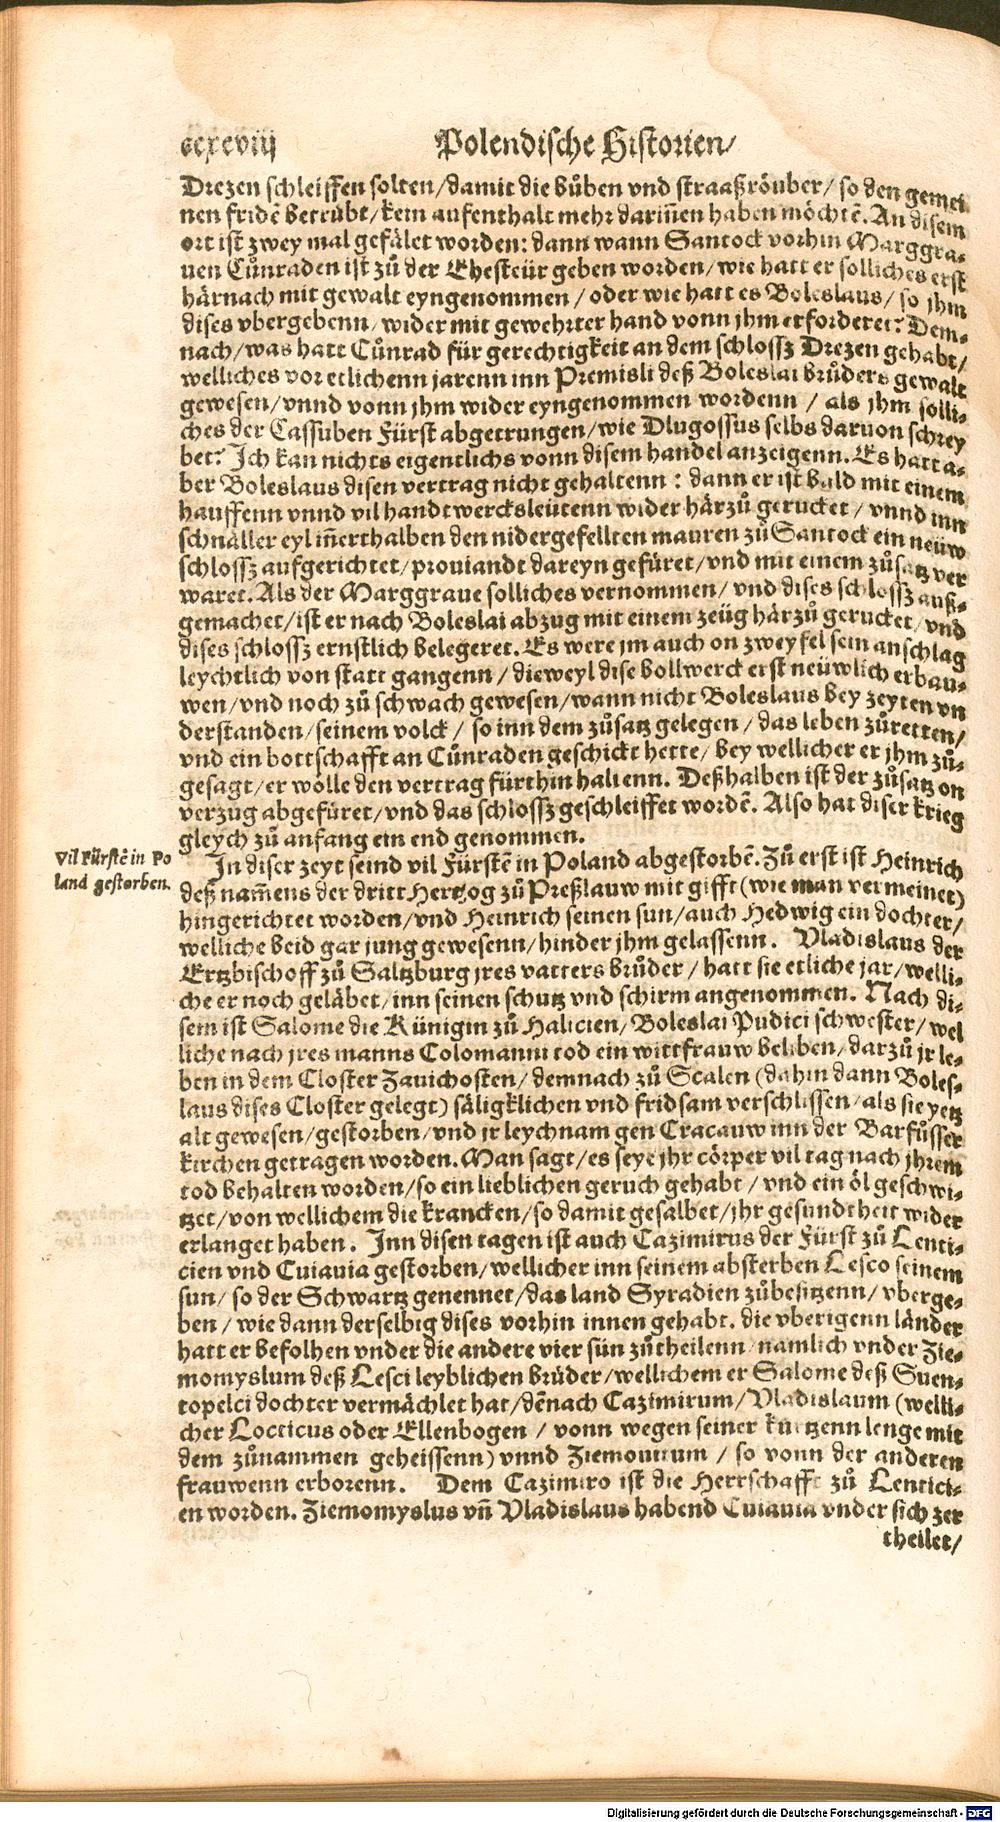 ccxcviij Polendische Historien/
Drezen schleiffen solten/damit die bůben vnd straaßröuber/ so den gemei
nen fridē betrübt/kein aufenthalt mehr dariñen haben möchtē. An disem
ort ist zwey mal gefälet worden: dann wann Santock vorhin Marggra-
uen Cůnraden ist zů der Ehesteür geben worden/wie hatt er solliches erst
härnach mit gewalt eyngenommen / oder wie hatt es Boleslaus/ so jhm
dises vbergebenn/wider mit gewehrter hand vonn jhm erforderet? Dem-
nach/was hatt Cůnrad für gerechtigkeit an dem schlossz Drezen gehabt/
welliches vor etlichenn jarenn inn Premisli deß Boleslai brůders gewalt
gewesen/vnnd vonn jhm wider eyngenommen wordenn / als jhm solli-
ches der Cassuben Fürst abgetrungen/wie Dlugossus selbs daruon schrey
bet? Ich kan nichts eigentlichs vonn disem handel anzeigenn. Es hatt a-
ber Boleslaus disen vertrag nicht gehaltenn : dann er ist bald mit einem
hauffenn vnnd vil handtwercksleütenn wider härzů gerucket / vnnd inn
schnäller eyl iñerthalben den nidergefellten mauren zů Santock ein neüw
schlossz aufgerichtet/prouiandt dareyn gefüret/vnd mit einem zůsatz ver
waret. Als der Marggraue solliches vernommen/ vnd dises schlossz auß-
gemachet/ist er nach Boleslai abzug mit einem zeüg härzů gerucket/vnd
dises schlossz ernstlich belegeret. Es were jm auch on zweyfel sein anschlag
leychtlich von statt gangenn / dieweyl dise bollwerck erst neüwlich erbau-
wen/vnd noch zů schwach gewesen/wann nicht Boleslaus bey zeyten vn
derstanden/seinem volck / so inn dem zůsatz gelegen / das leben zůretten/
vnd ein bottschafft an Cůnraden geschickt hette/ bey wellicher er jhm zů-
gesagt/er wölle den vertrag fürthin haltenn. Deßhalben ist der zůsatz on
verzug abgefüret/vnd das schlossz geschleiffet wordē. Also hat diser krieg
gleych zů anfang ein end genommen.
Vil Fürstē in Po
land gestorben.
In diser zeyt seind vil Fürstē in Poland abgestorbē. Zů erst ist Heinrich
deß nam̃ens der dritt Hertzog zů Preßlauw mit gifft (wie man vermeinet)
hingerichtet worden/vnd Heinrich seinen sun/auch Hedwig ein dochter/
welliche beid gar jung gewesenn/hinder jhm gelassenn. Vladislaus der
Ertzbischoff zů Saltzburg jres vatters brůder / hatt sie etliche jar/welli-
che er noch geläbet/inn seinen schutz vnd schirm angenommen. Nach di-
sem ist Salome die Künigin zů Halicien/Boleslai Pudici schwester/wel
liche nach jres manns Colomanni tod ein wittfrauw beliben/darzů jr le-
ben in dem Closter Zauichosten/demnach zů Scalen (dahin dann Boles-
laus dises Closter gelegt) säligklichen vnd fridsam verschlissen/als sie yetz
alt gewesen/gestorben/vnd jr leychnam gen Cracauw inn der Barfůsser
kirchen getragen worden. Man sagt/es seye jhr cörper vil tag nach jhrem
tod behalten worden/so ein lieblichen geruch gehabt / vnd ein öl geschwi-
tzet/von wellichem die krancken/so damit gesalbet/jhr gesundtheit wider
erlanget haben. Inn disen tagen ist auch Cazimirus der Fürst zů Lenti-
cien vnd Cuiauia gestorben/wellicher inn seinem absterben Lesco seinem
sun/ so der Schwartz genennet/das land Syradien zůbesitzenn/ vberge-
ben / wie dann derselbig dises vorhin innen gehabt. die vberigenn länder
hatt er befolhen vnder die andere vier sün zůtheilenn/namlich vnder Zie-
momyslum deß Lesci leyblichen brüder/wellichem er Salome deß Suen-
topelci dochter vermächlet hat/dēnach Cazimirum/Vladislaum (welli-
cher Locticus oder Ellenbogen / vonn wegen seiner kürtzenn lenge mit
dem zůnammen geheissenn) vnnd Ziemouitum / so vonn der anderen
frauwenn erborenn. Dem Cazimiro ist die Herrschafft zů Lentici-
en worden. Ziemomyslus vñ Vladislaus habend Cuiauia vnder sich zer
theilet/
Digitalisierung gefördert durch die Deutsche Forschungsgemeinschaft - DFG